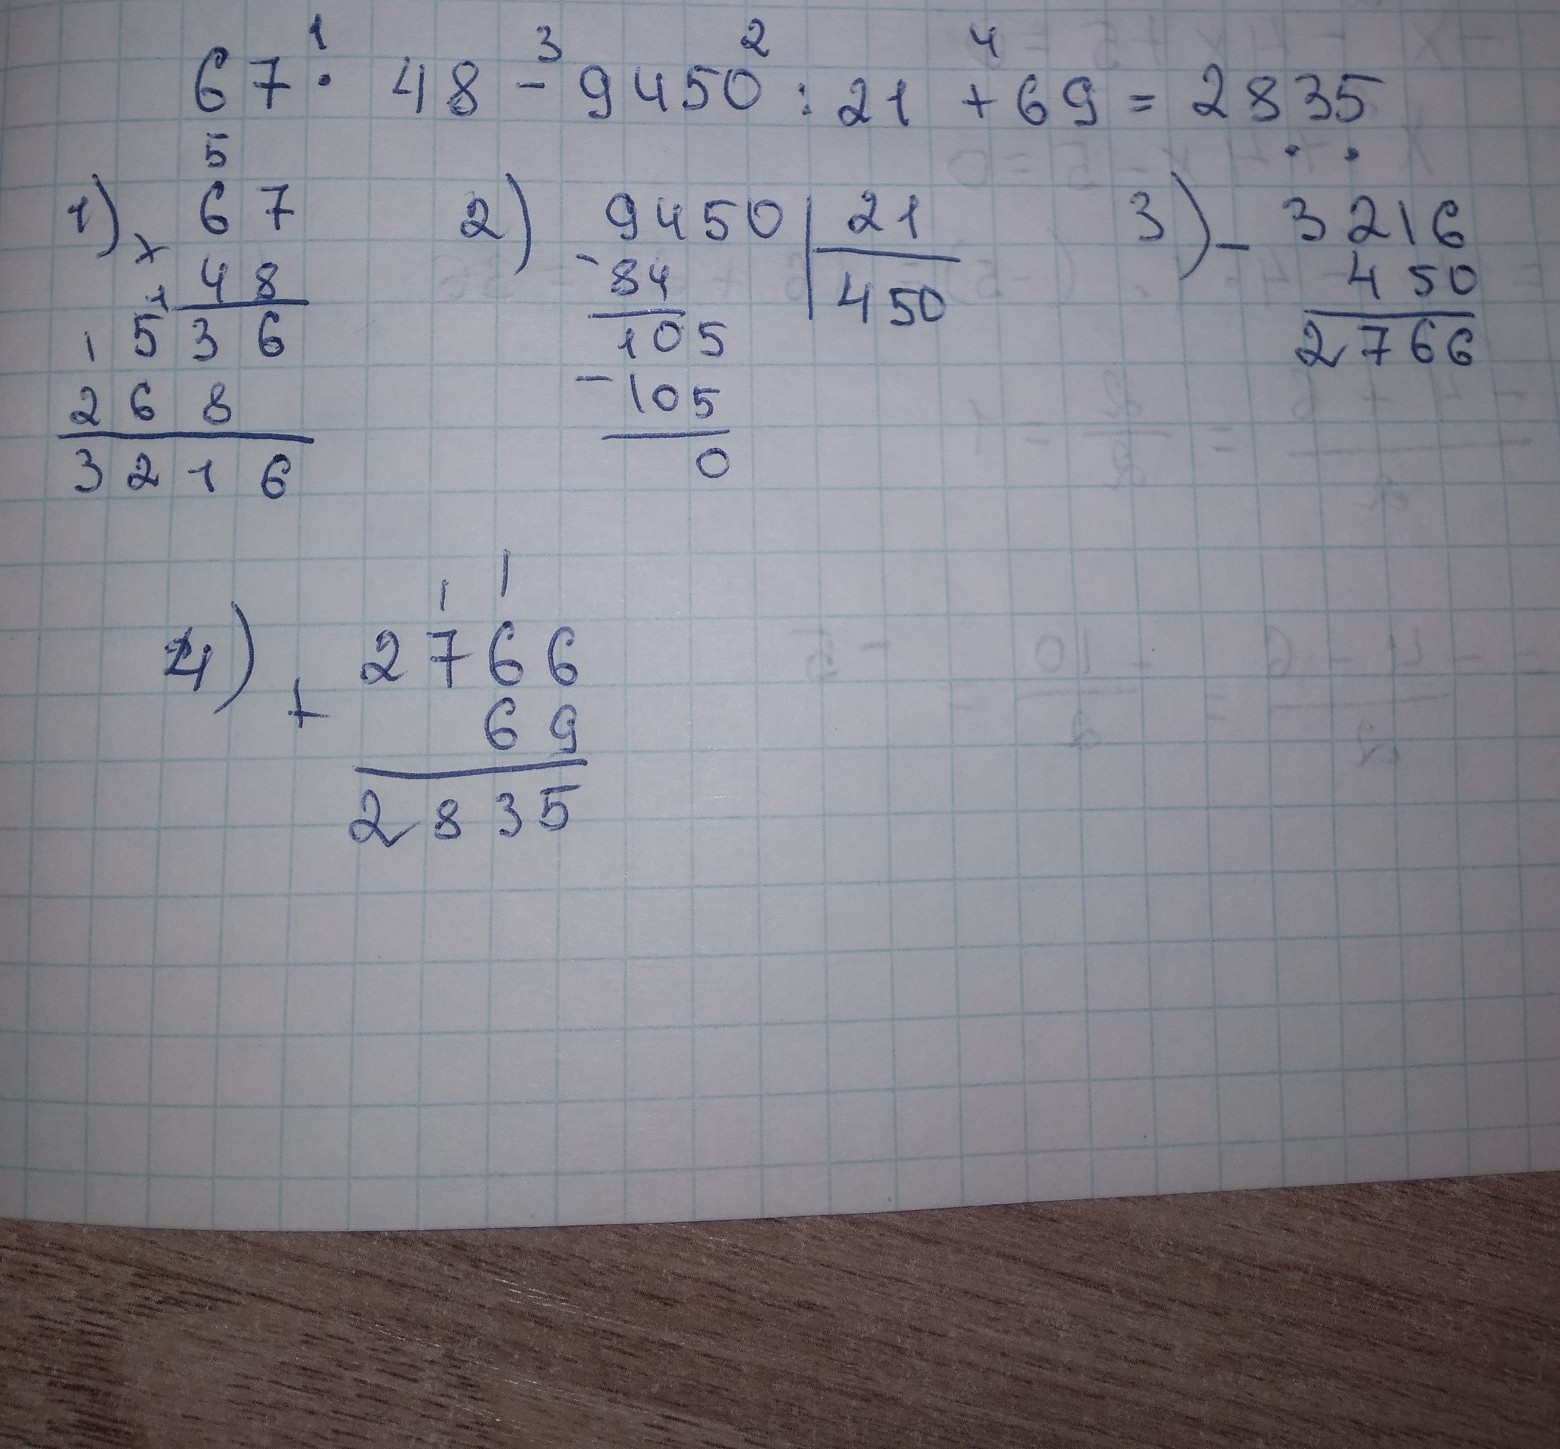 1 3 2 4
67 · 48 - 9450 : 21 + 69 = 2835
5
1) 67 2) 9450 21 3) - 3216
x 48 - 84 450 450
+ 536 105 2766
1
268 - 105
3216 0
1 1
4) 2766
+ 69
2835